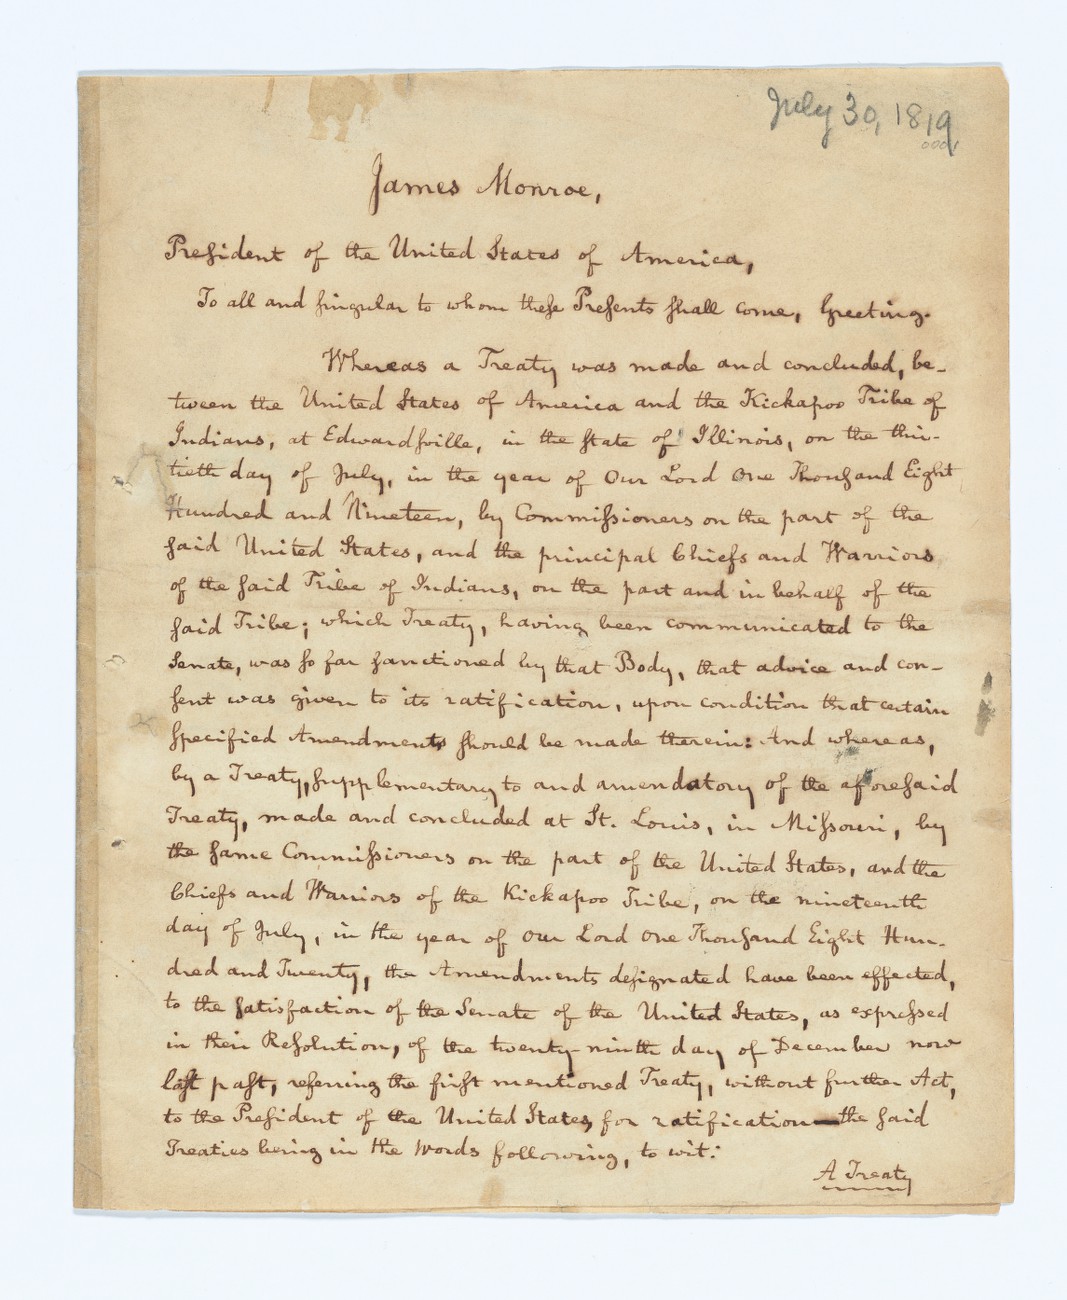 July 30, 1819
0001
James Monroe,
President of the United States of America,
To all and singular to whom these Presents shall come, Greeting.
Whereas a Treaty was made and concluded, be-
tween the United States of America and the Kickapoo Tribe of
Indians, at Edwardsville, in the State of Illinois, on the thir-
tieth day of July, in the year of Our Lord One Thousand Eight
Hundred and Nineteen, by Commissioners on the part of the
said United States, and the principal Chiefs and Warriors
of the said Tribe of Indians, on the part and in behalf of the
said Tribe; which Treaty, having been communicated to the
Senate, was so far sanctioned by that Body, that advice and con-
sent was given to its ratification, upon condition that certain
specified Amendments should be made therein: And whereas,
by a Treaty, supplementary to and amendatory of the aforesaid
Treaty, made and concluded at St. Louis, in Missouri, by
the same Commissioners on the part of the United States, and the
Chiefs and Warriors of the Kickapoo Tribe, on the nineteenth
day of July, in the year of Our Lord One Thousand Eight Hun-
dred and Twenty, the Amendments designated have been effected,
to the satisfaction of the Senate of the United States, as expressed
in their Resolution, of the twenty-ninth day of December now
last past, referring the first mentioned Treaty, without further Act,
to the President of the United States, for ratification—the said
Treaties being in the words following, to wit:
A Treaty